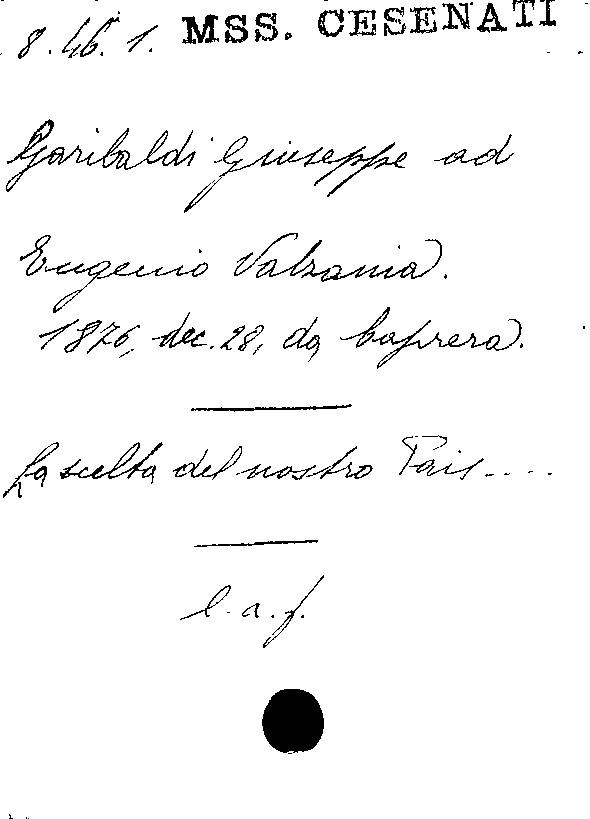 8.46.1. MSS. CESENATI
Garibaldi Giuseppe ad
Eugenio Valzania.
1876, dec. 28, da Caprera.
La scelta del nostro Pais....
l. a. f.